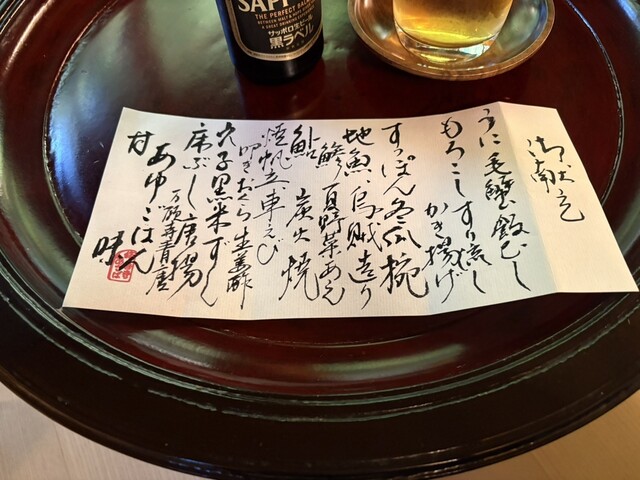 SAPP
THE PERFECT BAL
サッポロ生ビール
黒ラベル
御献立
うに 毛蟹 飯むし
もろこしすり流し
かき揚げ
すっぽん冬瓜椀
地魚 烏賊 造り
鱧 夏野菜あえ
鮎 炭火焼
焼帆立 車えび
叩きおくら 生姜酢
穴子黒米ずし
唐揚
万願寺青唐
あゆごはん
甘味